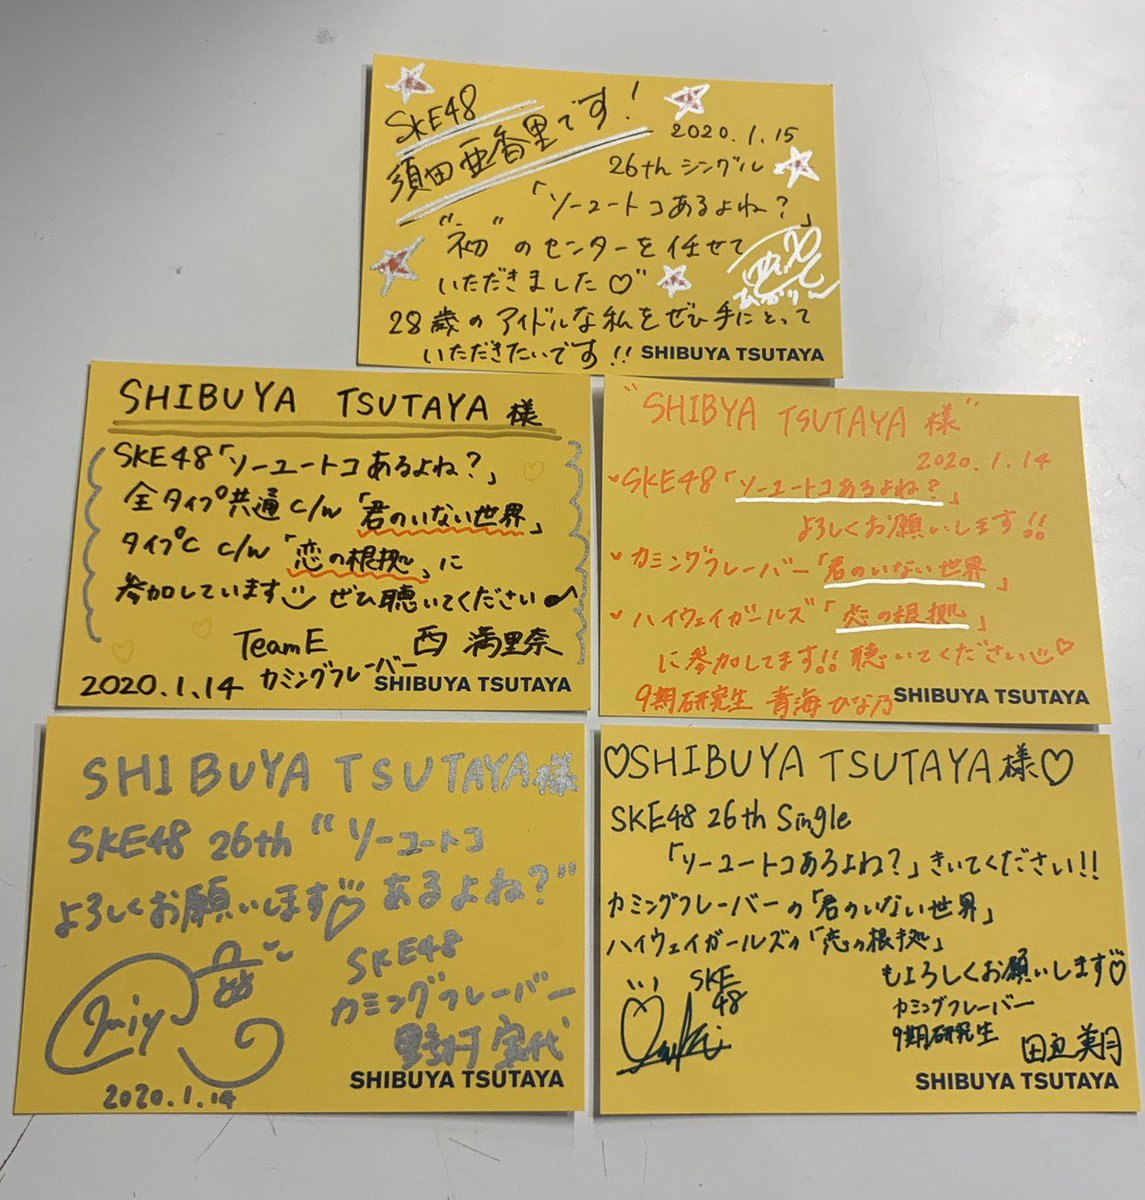 SKE48
須田亜香里です!
2020.1.15
26thシングル
「ソーユートコあるよね?」
"初"のセンターを任せて
いただきました♡"
28歳のアイドルな私をぜひ手にとって
いただきたいです!!
SHIBUYA TSUTAYA
SHIBUYA TSUTAYA 様
SKE48「ソーユートコあるよね?」
全タイプ共通 c/w 「君のいない世界」
タイプC c/w 「恋の根拠」に
参加しています ぜひ聴いてください♪
TeamE 西 満里奈
カミングフレーバー
2020.1.14
SHIBUYA TSUTAYA
"SHIBYA TSUTAYA 様"
2020.1.14
♥SKE48「ソーユートコあるよね?」
よろしくお願いします!!
♥カミングフレーバー「君のいない世界」
♥ハイウェイガールズ「恋の根拠」
に参加してます!! 聴いてください♡
9期研究生 青海ひな乃
SHIBUYA TSUTAYA
SHIBUYA TSUTAYA様
SKE48 26th "ソーユートコ
あるよね?"
よろしくお願いします♡
SKE48
カミングフレーバー
野村 実代
2020.1.14
SHIBUYA TSUTAYA
♡SHIBUYA TSUTAYA 様♡
SKE48 26th Single
「ソーユートコあるよね?」きいてください!!
カミングフレーバーの「君のいない世界」
ハイウェイガールズの「恋の根拠」
もよろしくお願いします♡
SKE
48
カミングフレーバー
9期研究生
田辺美月
SHIBUYA TSUTAYA